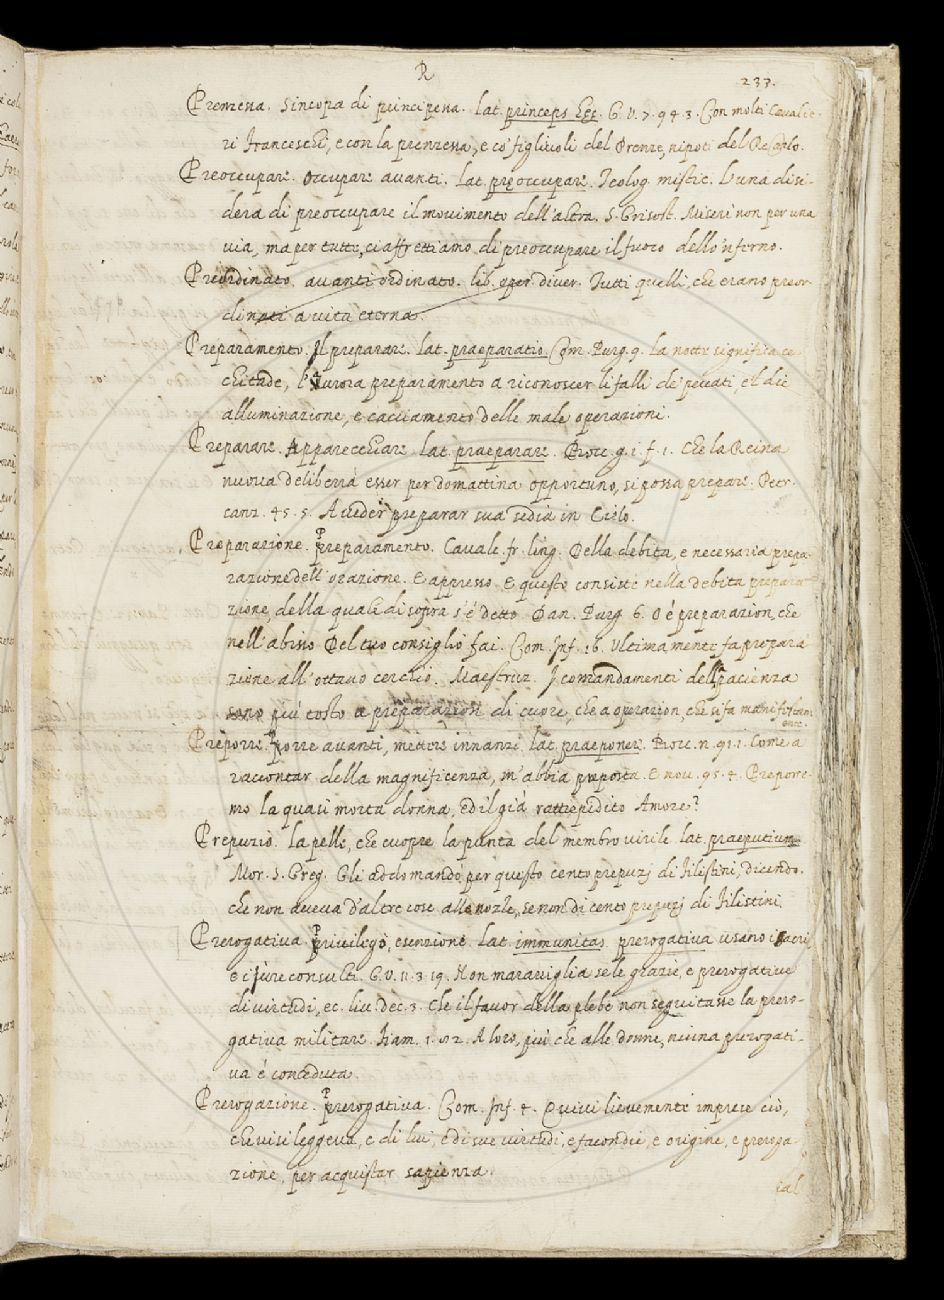 R
237.
Prenzessa. Sincopa di principessa. lat. princeps G. V. 7. 94. 3. Con molti Cavalie-
ri Franceschi, e con la prenzessa, e co' figliuoli del Prenze, nipoti del Re Carlo.
Preoccupare. Occupare avanti. lat. preoccupare. Teolog. mistic. L'una disi-
dera di preoccupare il movimento dell'altra. S. Grisost. Miseri non per una
via, ma per tutte, ci affrettiamo di preoccupare il fuoco dello 'nferno.
Preordinato. avanti ordinato. lib. oper. diver. Tutti quelli, che erano preor-
dinati a vita eterna.
Preparamento. Il preparare. lat. praeparatio. Com. Purg. 9. La notte significa ce-
chitade, l'Aurora preparamento a riconoscer li falli de' peccati, e'l die
alluminazione, e cacciamento delle male operazioni.
Preparare. Apparecchiare. lat. praeparare. Bocc. g. 1. f. 1. Che la Reina
nuova delibera esser per domattina opportuno, si possa preparare. Petr.
canz. 45. 5. A veder preparar sua sedia in Cielo.
Preparazione. Preparamento. Cavalc. fr. ling. Della debita, e necessaria prepa-
razione dell'orazione. E appresso. E questo consiste nella debita prepara-
zione, della quale di sopra s'è detto. Dan. Purg. 6. O è preparazion, che
nell'abisso Del tuo consiglio fai. Com. Inf. 16. Ultimamente fa prepara-
zione all'ottavo cerchio. Maestruz. I comandamenti della pacienza
sono più tosto a preparazion di cuore, che a operazion, che si fa manifestam
ente.
Preporre. Porre avanti, mettere innanzi. lat. praeponere. Bocc. n. 91. 1. Come a
raccontar della magnificenza, m'abbia preposta. E nov. 95. 4. Prepore-
mo la quasi morta donna, ed il già rattiepidito Amore?
Prepuzio. La pelle, che cuopre la punta del membro virile. lat. praeputium
Mor. S. Greg. Gli addomandò per questo cento prepuzj di Filistini, dicendo
che non aveva d'altre cose alle nozze, se non di cento prepuzj di Filistini.
Prerogativa. Privilegio, esenzione. Lat. immunitas. prerogativa usano i sacri
e i jure consulti. G. V. 11. 3. 19. Non maraviglia se le grazie, e prerogative
di virtudi, ec. liv. Dec. 3. Che il favor della plebe non seguitasse la prero-
gativa militare. Fiam. 1. 102. A loro, più che alle donne, niuna prerogati-
va è conceduta.
Prerogazione. Prerogativa. Com. Inf. 4. Quivi lievemente imprese ciò,
che vi si leggeva, e di lui, e di sue virtudi, e facondie, e origine, e preroga-
zione, per acquistar sapienza.